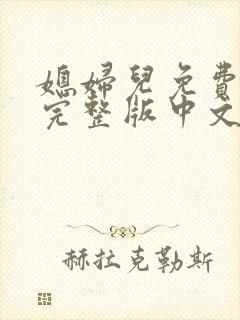 媳婦兒免費
完整版中文
赫拉克勒斯